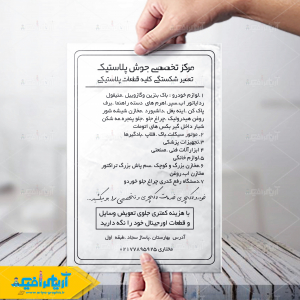 مرکز تخصصی جوش پلاستیک
تعمیر شکستگی کلیه قطعات پلاستیکی
۱.لوازم خودرو : باک بنزین وگازوییل .منیفولد
رادیاتور آب.سپر.اهرم های دسته راهنما .برف
پاک کن .آینه بغل .داشبورد .مخازن شیشه شور
روغن هیدرولیک .چراغ جلو .جلو پنجره مه شکن
شیار داخل گیر بکس های اتومات
۲.موتور سیکلت :باک .قالپاق .بادگیرها
۳.تجهیزات پزشکی
۴.ابزارآلات فنی .صنعتی
۵.لوازم خانگی
۶.مخازن بزرگ و کوچک .سم پاش بزرگ تراکتور
مخازن آب .روغن
۷.دستگاه رفع کدری چراغ جلو خودرو
با هزینه کمتری جلوی تعویض وسایل
و قطعات اورجینال خود را نگه دارید
آدرس :بهارستان .پاساژ سجاد .طبقه اول
مختاری ۰۲۱۷۷۸۹۵۹۲۵